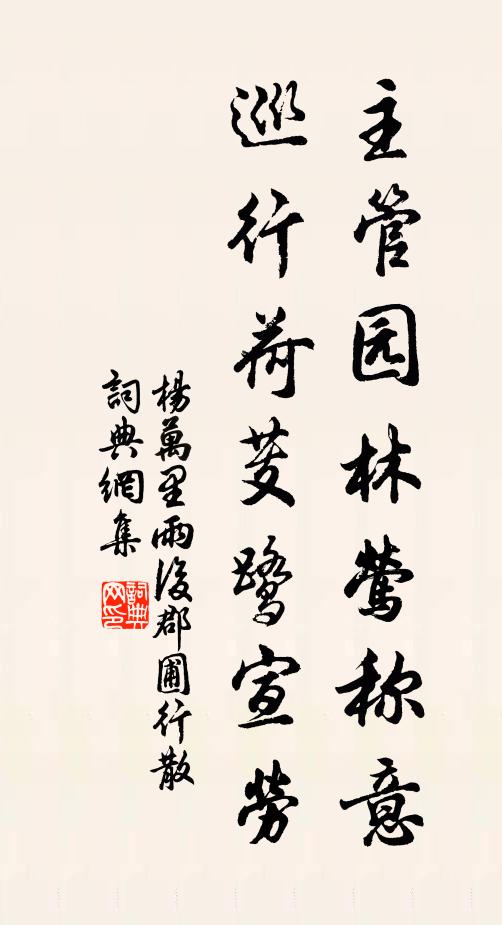 主管园林莺称意
巡行荷芰鹭宣劳
楊萬里雨後郡圃行散
詞典網集
詞典網印